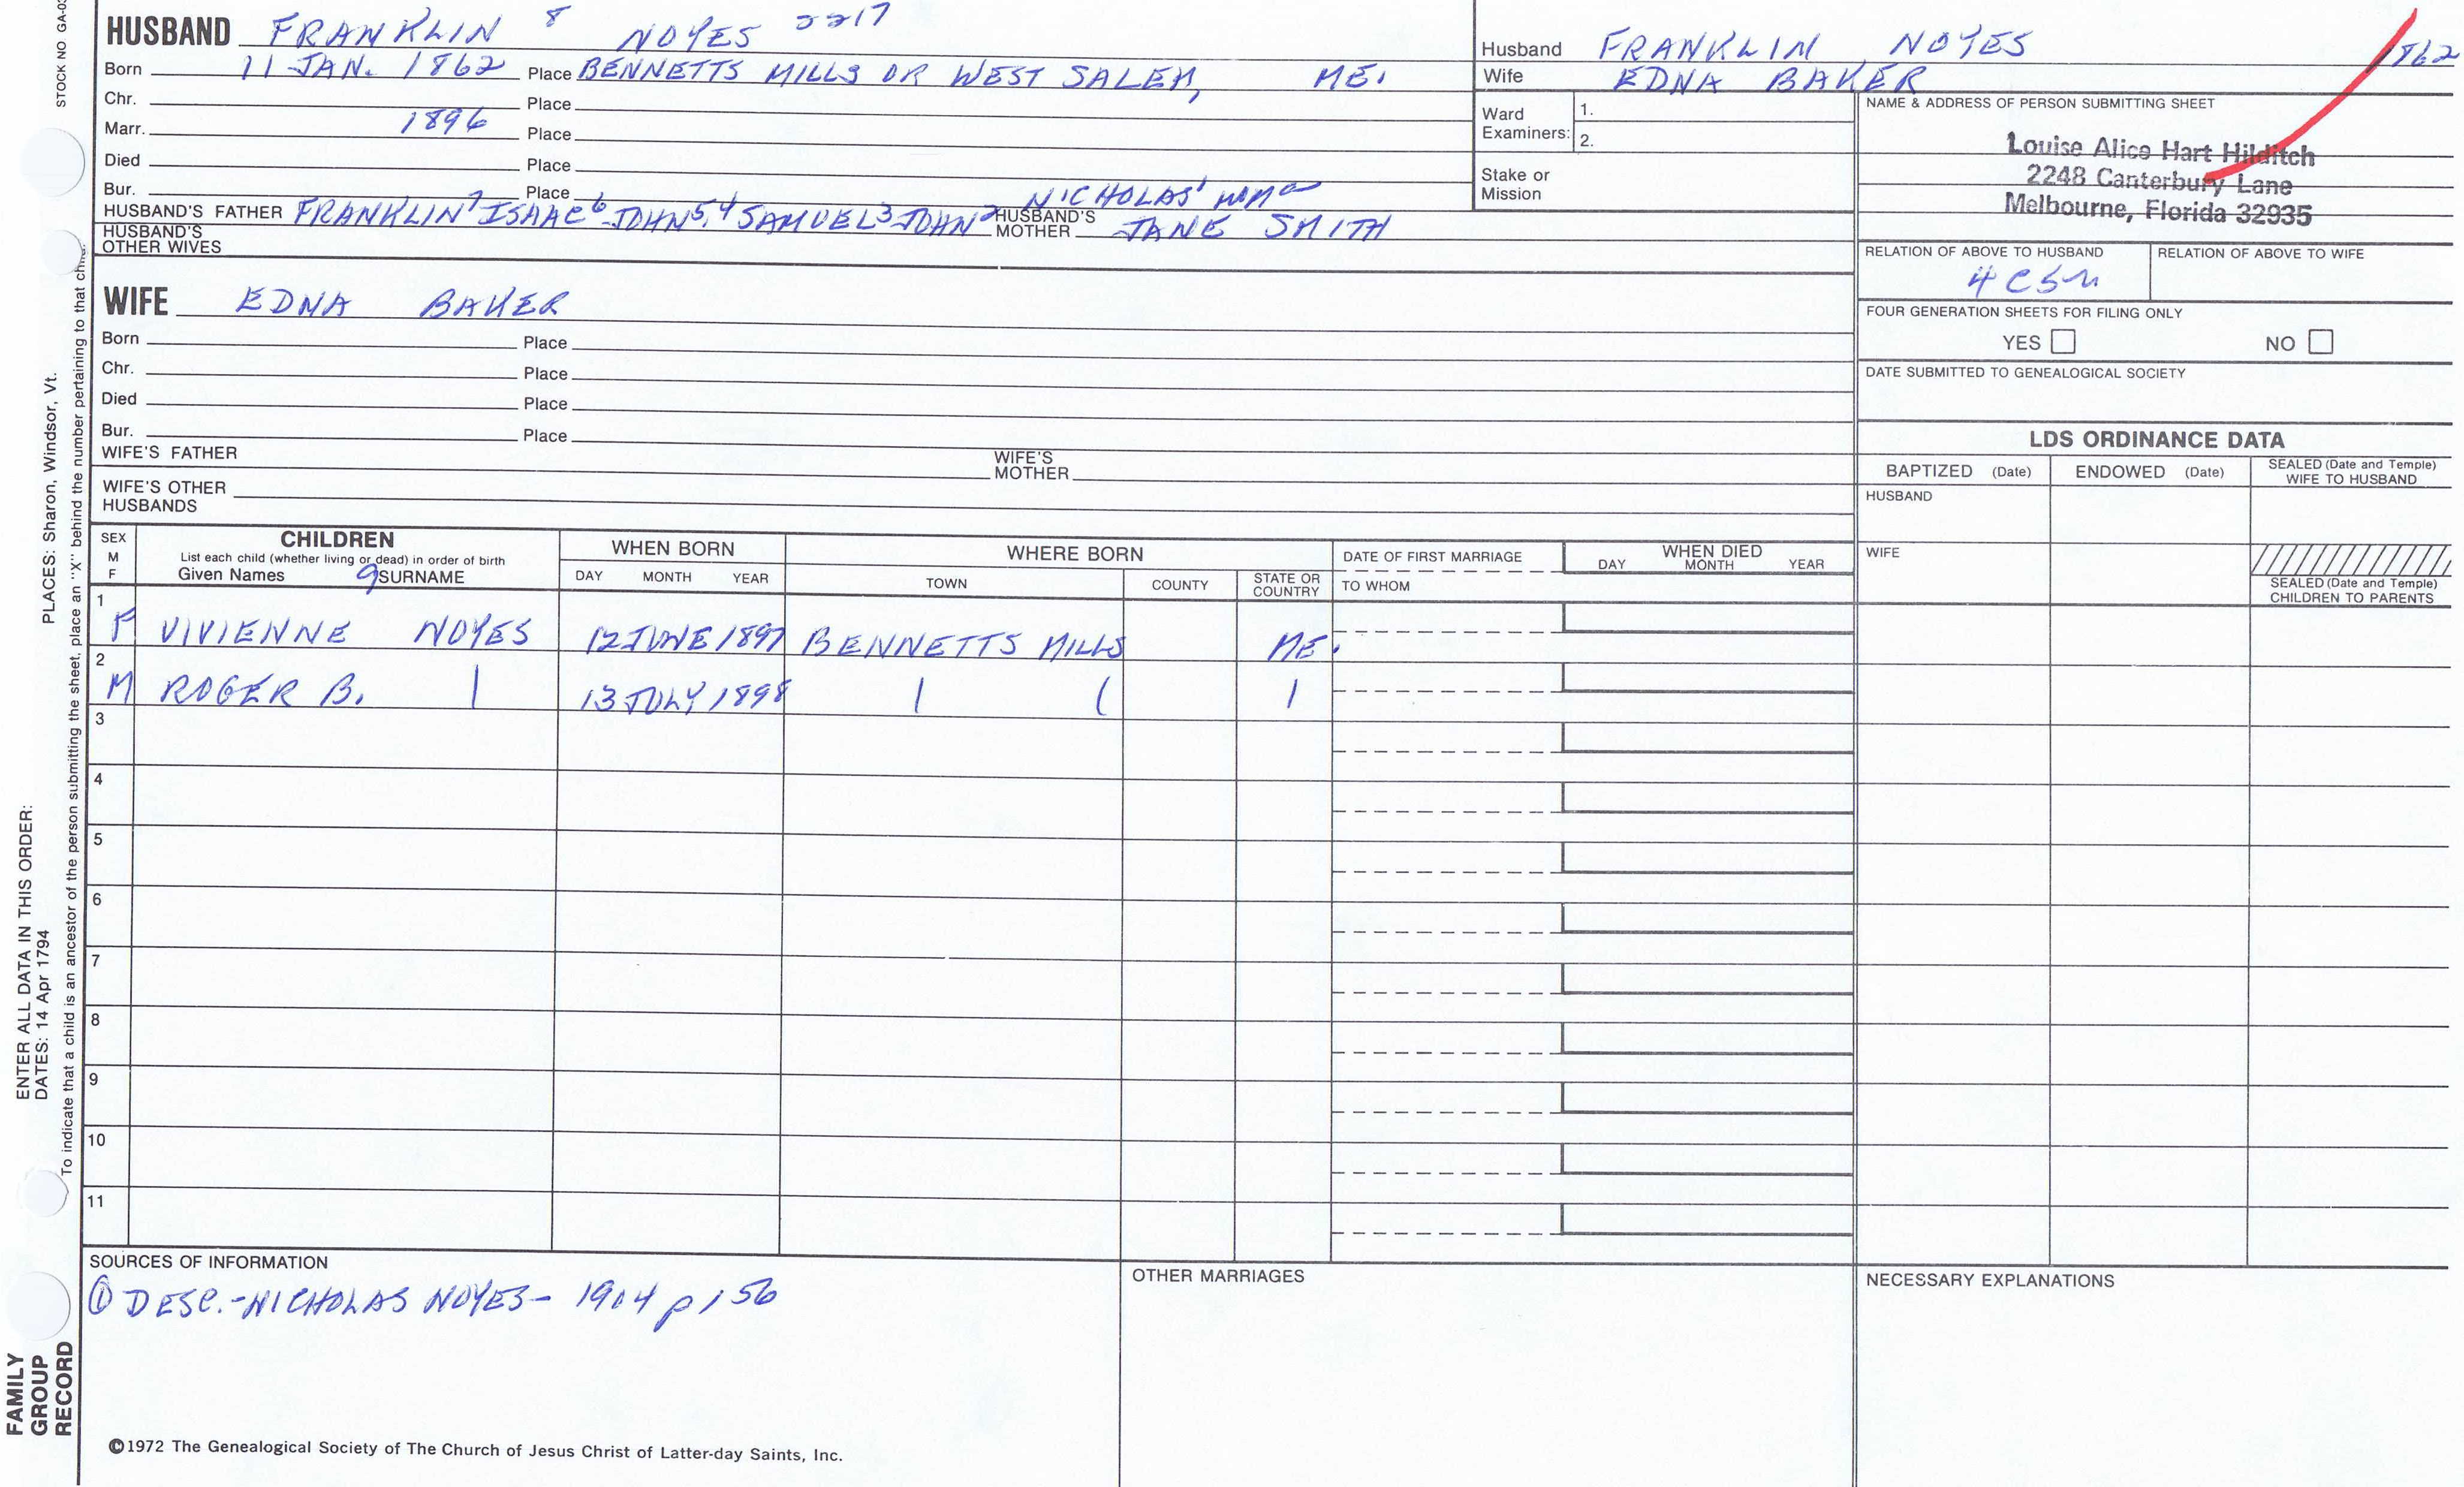 STOCK NO GA-0
HUSBAND FRANKLIN 8 NOYES 2217
Born 11 JAN. 1862 Place BENNETTS MILLS OR WEST SALEM, ME.
Chr. Place
Marr. 1896 Place
Died Place
Bur. Place NICHOLAS1
HUSBAND'S FATHER FRANKLIN7 ISAAC6 JOHN5,4 SAMUEL3 JOHN2 HUSBAND'S MOTHER JANE SMITH
HUSBAND'S OTHER WIVES
WIFE EDNA BAKER
Born Place
Chr. Place
Died Place
Bur. Place
WIFE'S FATHER WIFE'S MOTHER
WIFE'S OTHER HUSBANDS
Husband FRANKLIN NOYES 1862
Wife EDNA BAKER
Ward Examiners: 1.
2.
Stake or Mission
NAME & ADDRESS OF PERSON SUBMITTING SHEET
Louise Alice Hart Hilditch
2248 Canterbury Lane
Melbourne, Florida 32935
RELATION OF ABOVE TO HUSBAND RELATION OF ABOVE TO WIFE
FOUR GENERATION SHEETS FOR FILING ONLY
YES NO
DATE SUBMITTED TO GENEALOGICAL SOCIETY
LDS ORDINANCE DATA
BAPTIZED (Date) ENDOWED (Date) SEALED (Date and Temple) WIFE TO HUSBAND
HUSBAND
WIFE
SEALED (Date and Temple) CHILDREN TO PARENTS
SEX M F
CHILDREN
List each child (whether living or dead) in order of birth
Given Names 9 SURNAME
WHEN BORN
DAY MONTH YEAR
WHERE BORN
TOWN COUNTY STATE OR COUNTRY
DATE OF FIRST MARRIAGE
TO WHOM
WHEN DIED
DAY MONTH YEAR
1 F VIVIENNE NOYES 12 JUNE 1897 BENNETTS MILLS ME.
2 M ROGER B. 13 JULY 1898
3
4
5
6
7
8
9
10
11
SOURCES OF INFORMATION
① DESC.-NICHOLAS NOYES- 1904 p 156
OTHER MARRIAGES
NECESSARY EXPLANATIONS
©1972 The Genealogical Society of The Church of Jesus Christ of Latter-day Saints, Inc.
PLACES: Sharon, Windsor, Vt.
To indicate that a child is an ancestor of the person submitting the sheet, place an "X" behind the number pertaining to that
ENTER ALL DATA IN THIS ORDER:
DATES: 14 Apr 1794
FAMILY
GROUP
RECORD